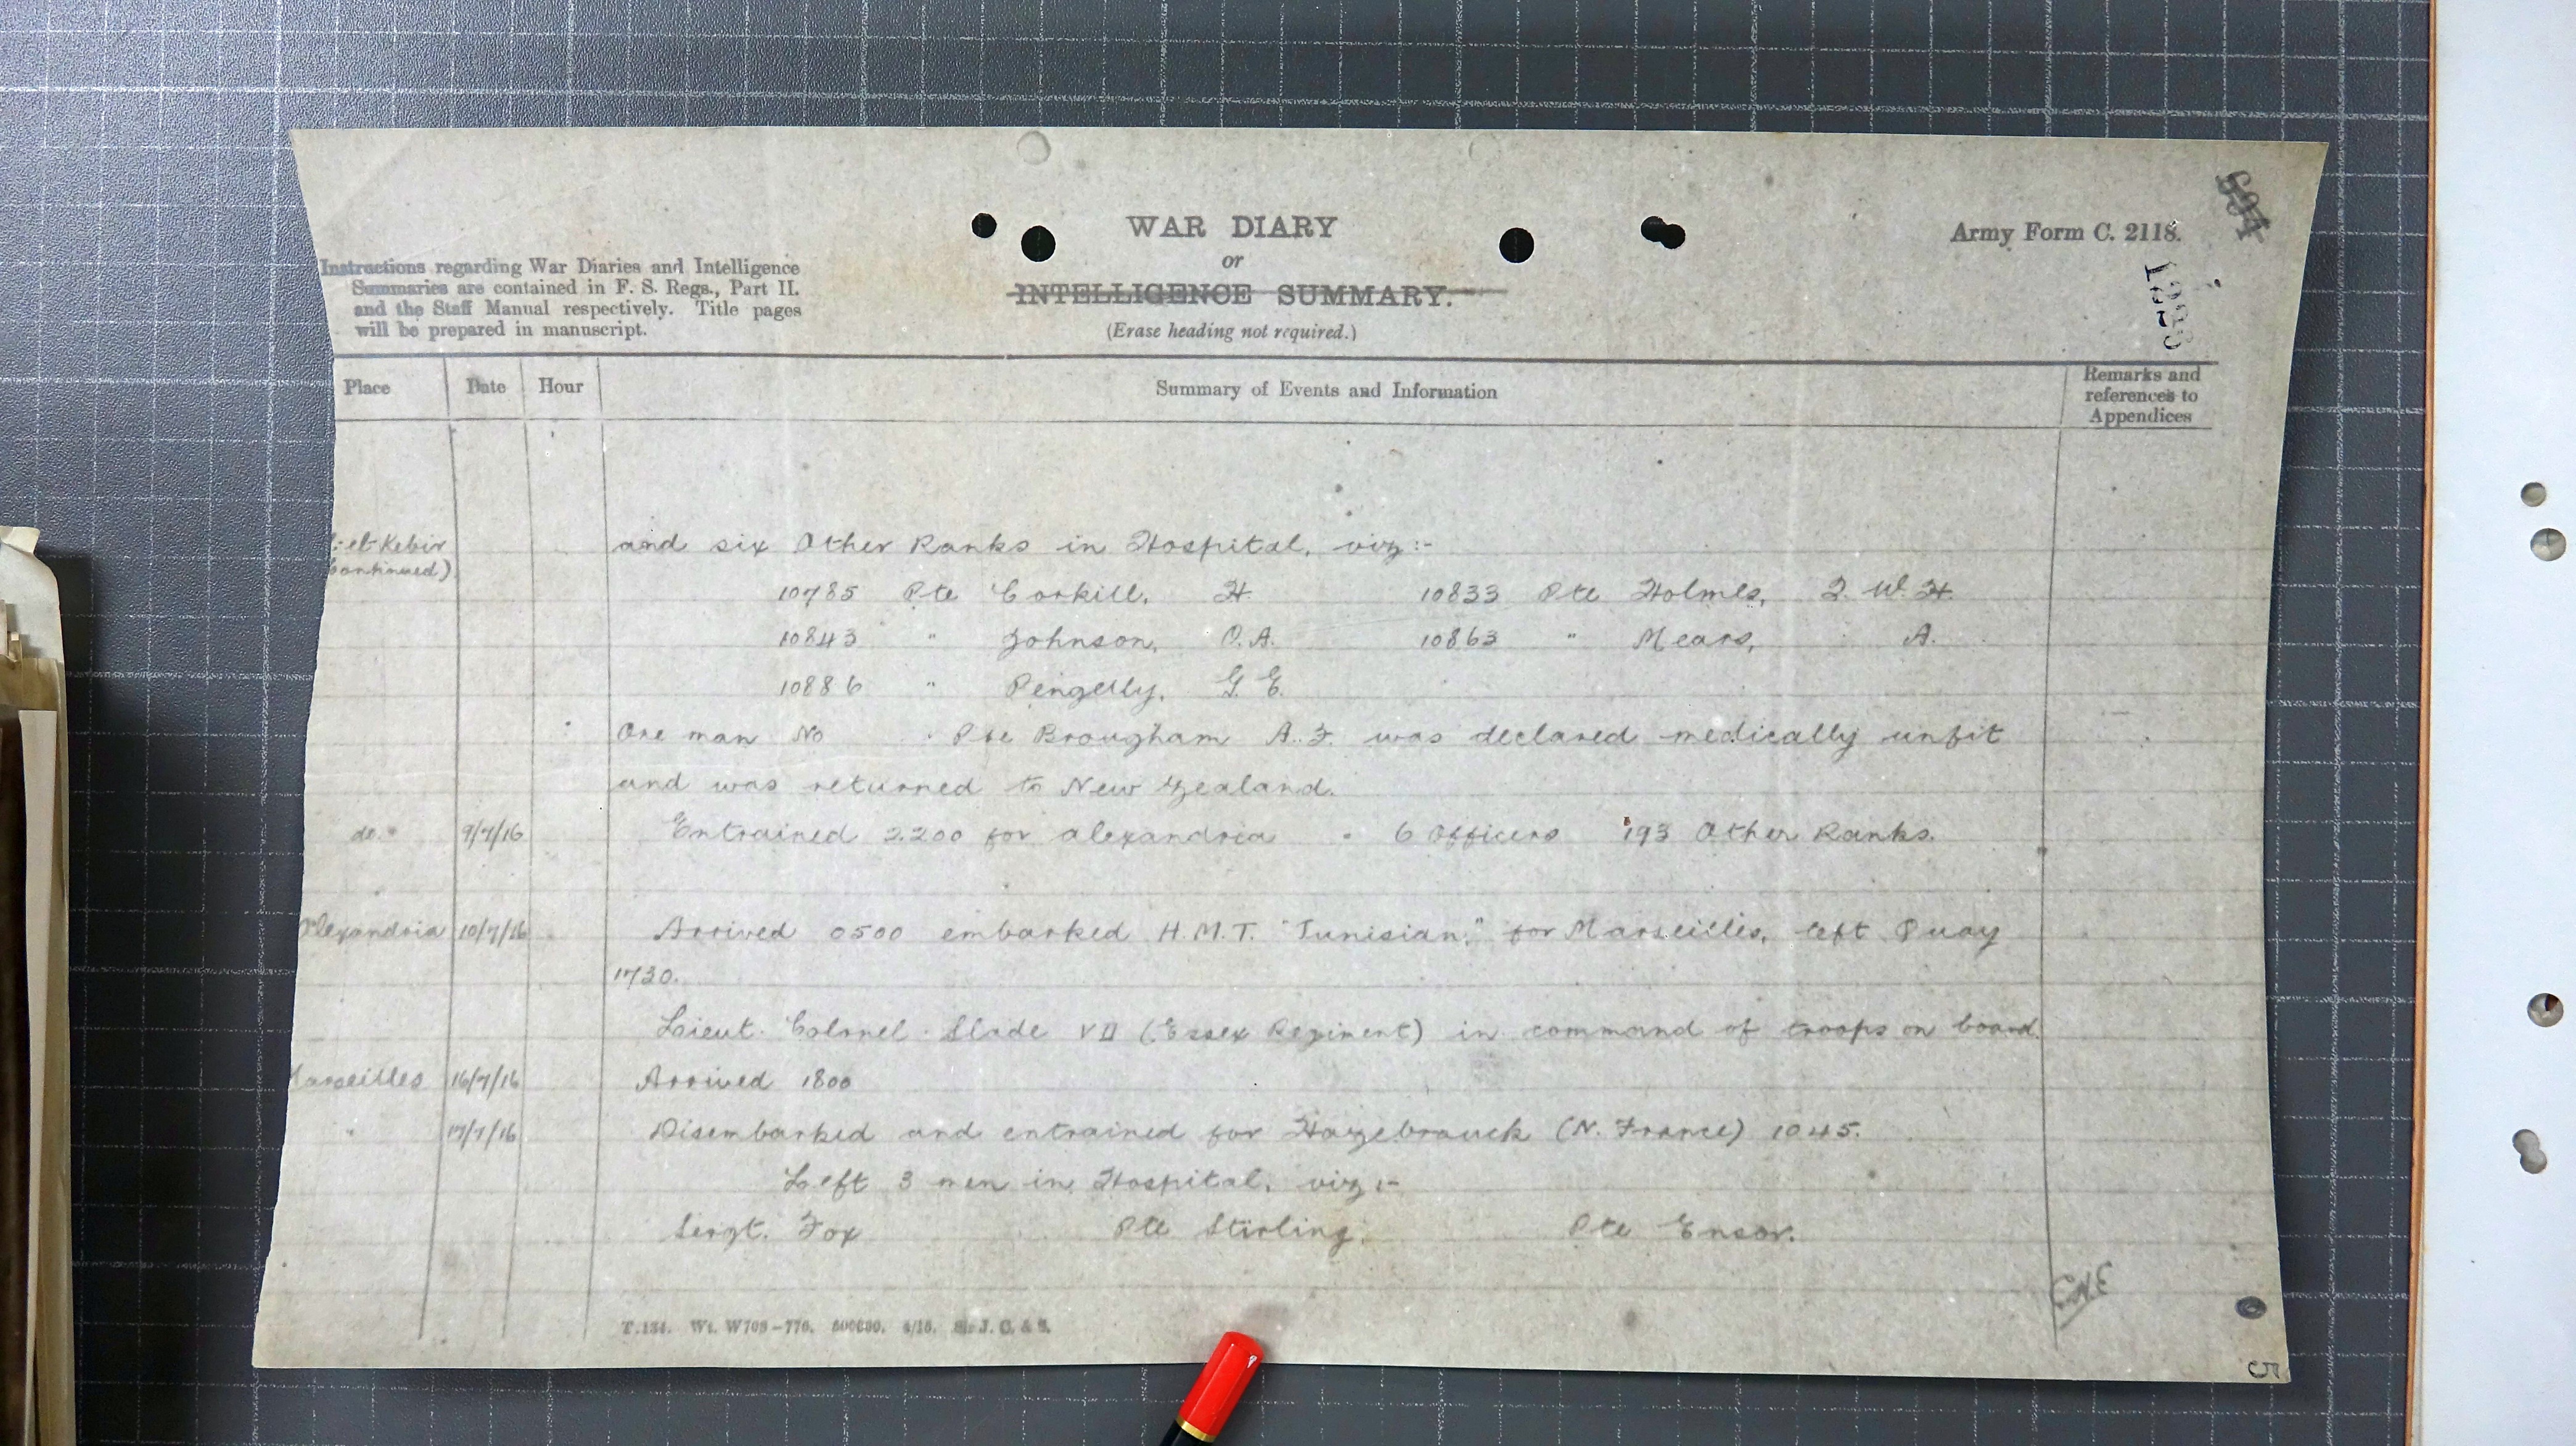 WAR DIARY
or
INTELLIGENCE SUMMARY.
(Erase heading not required.)
Army Form C. 2118.
Instructions regarding War Diaries and Intelligence
Summaries are contained in F. S. Regs., Part II.
and the Staff Manual respectively. Title pages
will be prepared in manuscript.
Place Date Hour Summary of Events and Information Remarks and references to Appendices
-el-Kebir and six Other Ranks in Hospital, viz:-
continued)
10785 Pte Corkill, H. 10833 Pte Holmes, W. H.
10843 " Johnson, O.A. 10863 " Mears, A.
10886 " Pengelly, G. E.
One man No Pte Brougham A.F. was declared medically unfit
and was returned to New Zealand.
do. 9/7/16 Entrained 2200 for Alexandria - 6 Officers 193 Other Ranks.
Alexandria 10/7/16 Arrived 0500 embarked H.M.T. "Tunisian," for Marseilles, left Quay
1730.
Lieut. Colonel Slade VD (Essex Regiment) in command of troops on board.
Marseilles 16/7/16 Arrived 1800
" 17/7/16 Disembarked and entrained for Hazebrouck (N. France) 1045.
Left 3 men in Hospital, viz:-
Sergt. Fox Pte Stirling Pte Ensor.
T.134. Wt. W708-776. 500000. 4/15. Sir J. C. & S.